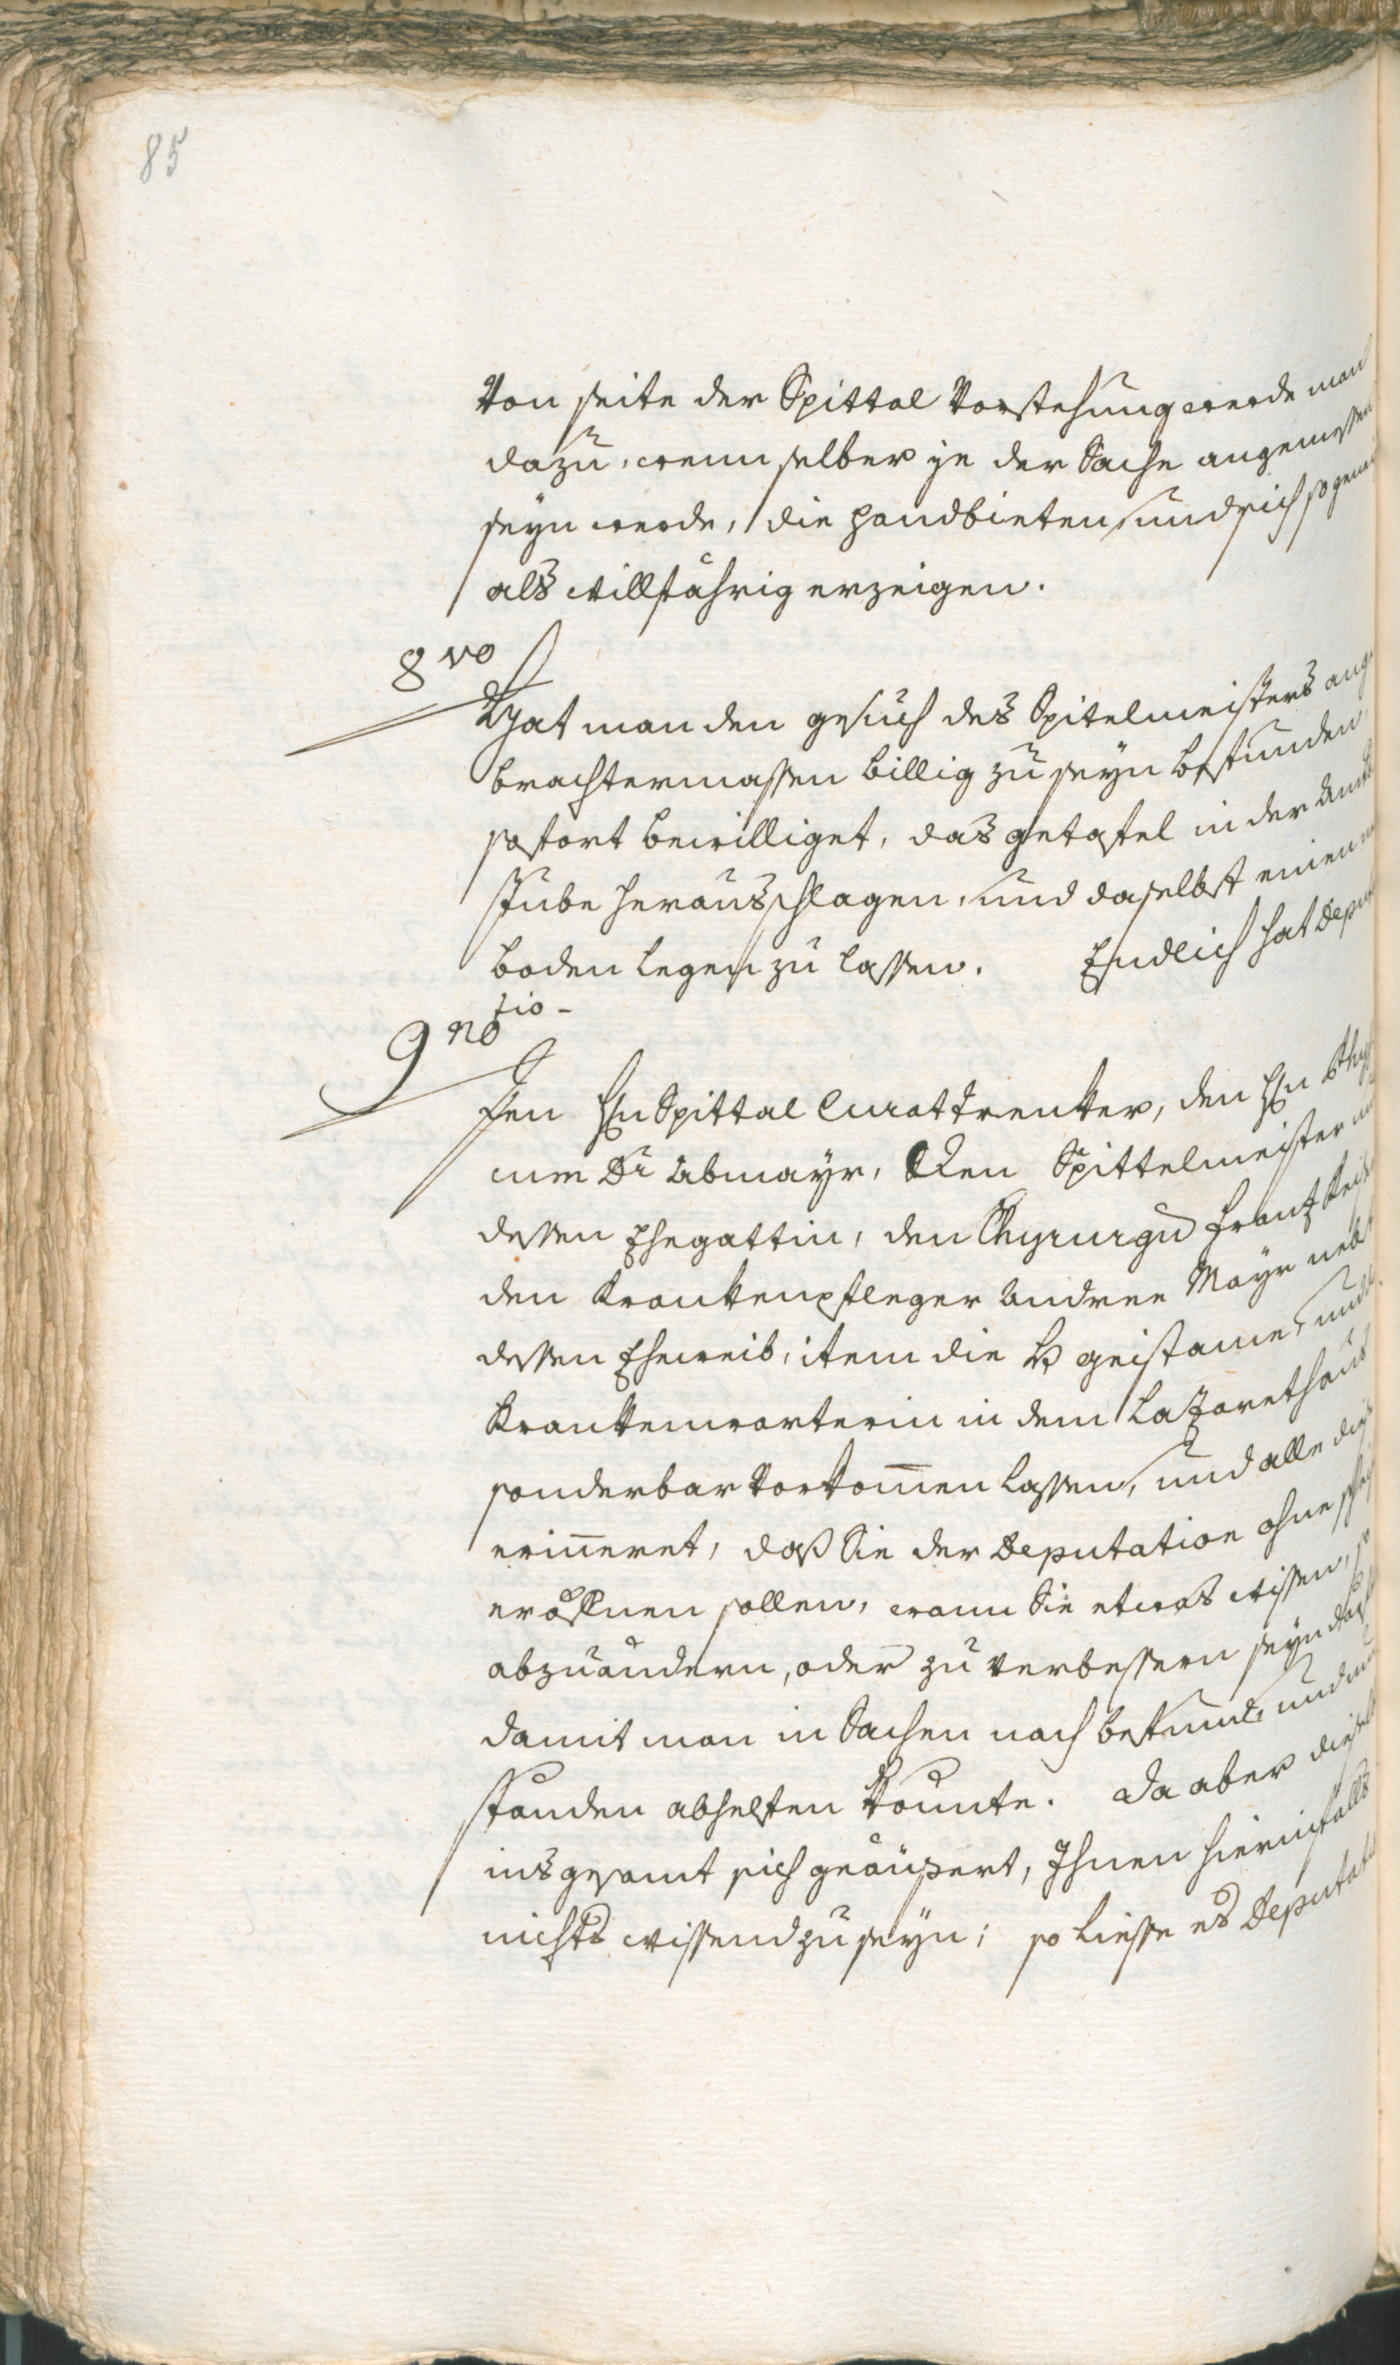 85
Von seite der Spittal Vorstehung werde man
dazu, wenn selber je der Sache angemessen
seyn werde, die hand bieten, und sich so geneigt
als willfährig erzeigen.
8vo
Hat man den gesuch des Spitelmeisters ange
brachtermassen billig zu seyn befunden
sofort bewilliget, das getäfel in der
stube herausschlagen, und daselbst einen
boden legen zu lassen. Endlich hat Deputa
tio -
9no
den Hn Spittal Curat Trenker, den Hn Physi
cum Dr Abmayr, Den Spittelmeister
dessen Ehegattin, den Chyrurgu Frantz
den Krankenpfleger Andree Mayr nebst
dessen Eheweib, item die
Krankenwarterin in dem Lazarethaus
sonderbar vorkomen lassen, und alle
erineret, daß Sie der Deputation ohne
eröffnen sollen, wann Sie etwas wissen, so
abzuändern, oder zu verbessern seyn
damit man in Sachen nach befund, und
standen abhelfen könnte. Da aber dieselbe
insgesamt sich geäußert, Ihnen hierinfalls
nichts wissend zu seyn; so liesse es Deputatio